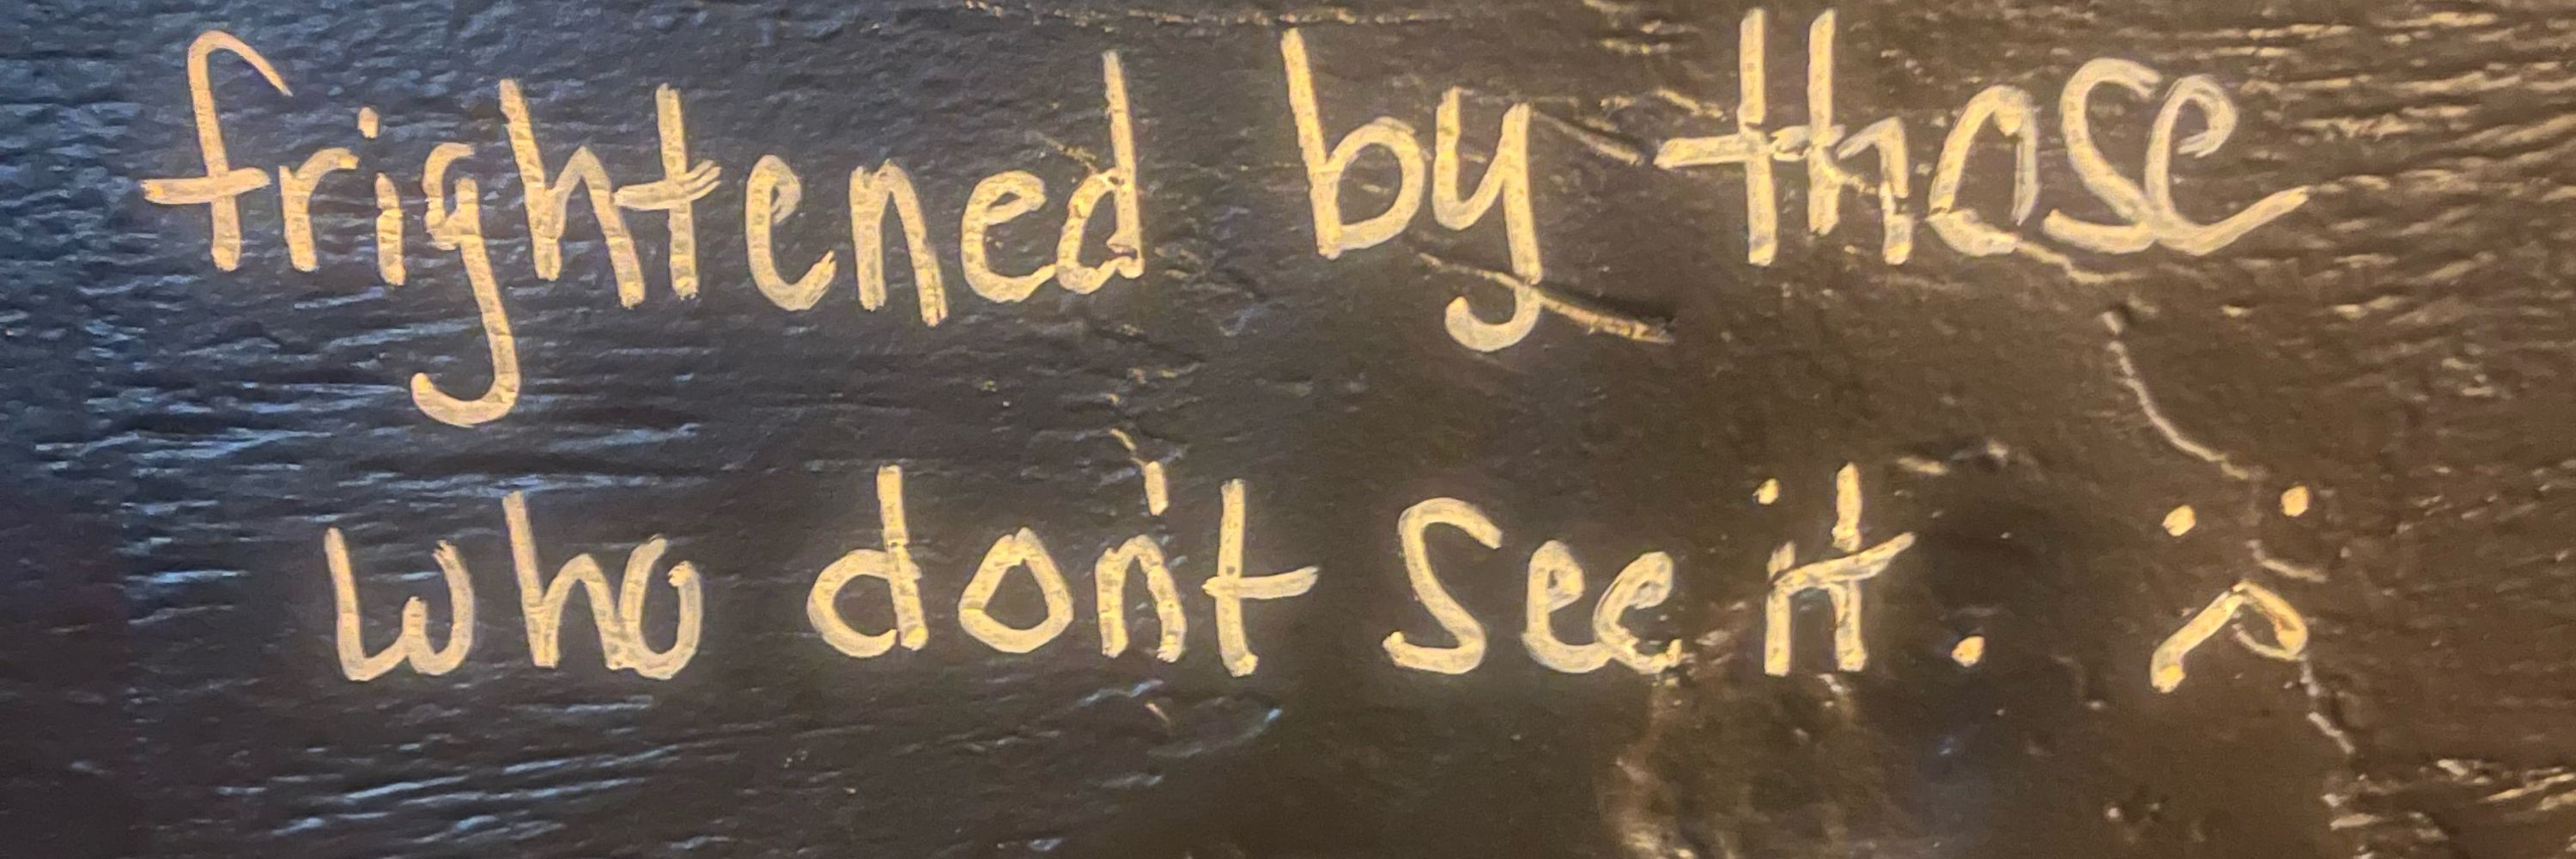 frightened by those
who don't see it. :(